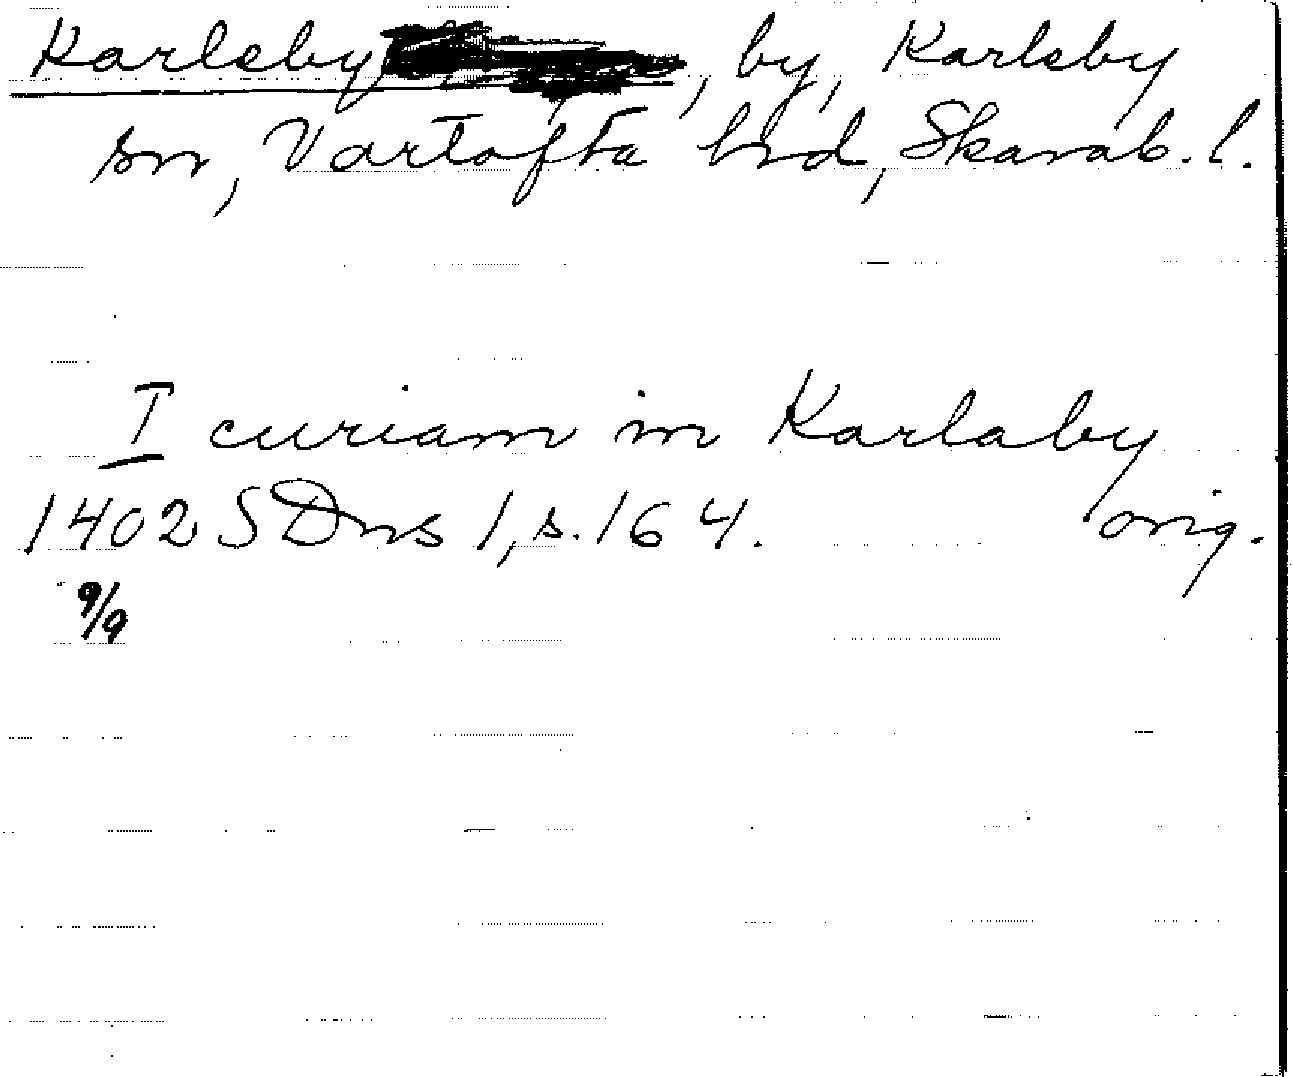 Karlsby, by, Karlsby
sn, Vartofta hrd, Skarab. l.
I curiam in Karlaby
1402 SDns 1, s. 164. orig.
9/9